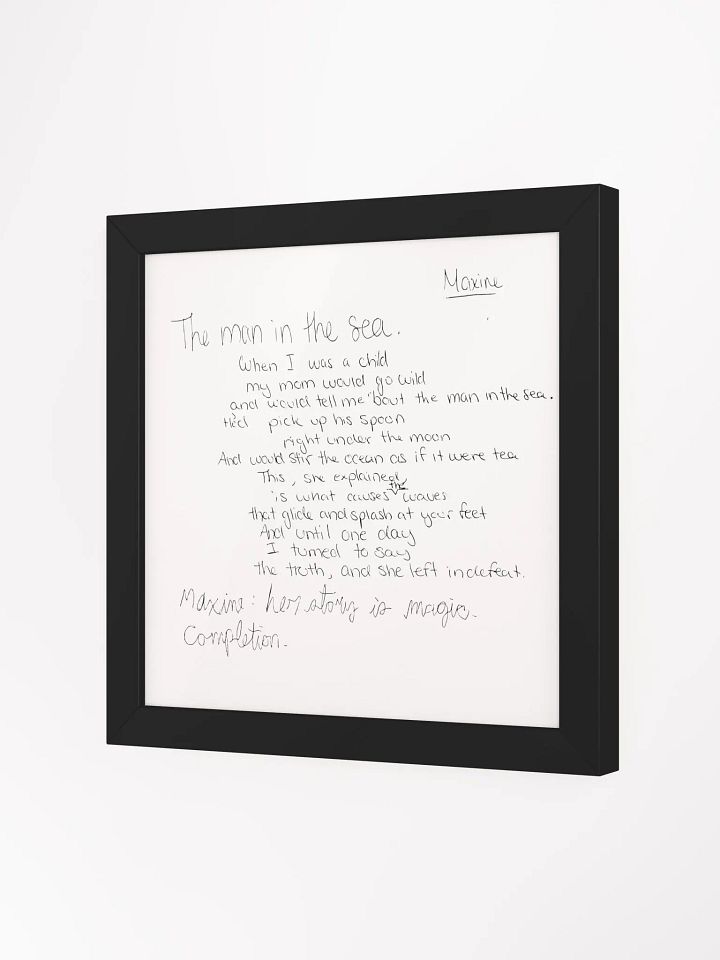 Maxine
The man in the sea.
When I was a child
my mom would go wild
and would tell me 'bout the man in the sea.
He'd pick up his spoon
right under the moon
And would stir the ocean as if it were tea
This, she explained
is what causes the waves
that glide and splash at your feet
And until one day
I turned to say
the truth, and she left in defeat.
Maxine: her story is magic.
Completion.